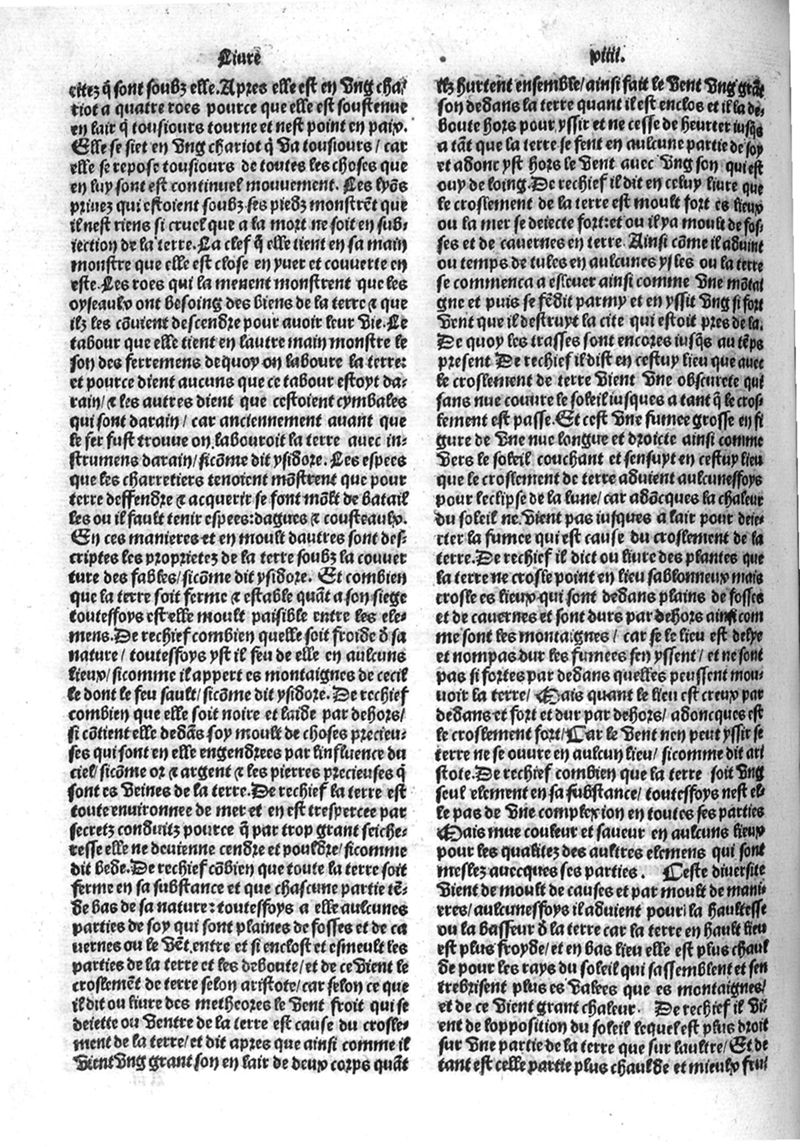 Liure
xiiii.
citez q̃ sont soubz elle. Apres elle est en vng cha/
riot a quatre roes pource que elle est soustenue
en lair q̃ tousiours tourne et nest point en paix.
Elle se siet en vng chariot q̃ va tousiours / car
elle se repose tousiours de toutes les choses que
en luy sont est continuel mouuement. Les lyõs
priuez qui estoient soubz ses piedz monstrẽt que
il nest riens si cruel que a la mort ne soit en sub-
iection de la terre. La clef q̃ elle tient en sa main
monstre que elle est close en yuer et couuerte en
este. Les roes qui la menent monstrent que les
oyseaulx ont besoing des biens de la terre ⁊ que
ilz les cõuient descendre pour auoir leur vie. Le
tabour que elle tient en lautre main monstre le
son des ferremens dequoy on laboure la terre:
et pource dient aucuns que ce tabour estoyt da-
rain / ⁊ les autres dient que cestoient cymbales
qui sont darain / car anciennement auant que
le fer fust trouue on labouroit la terre auec in-
strumens darain / sicõme dit ysidore. Les espees
que les charretiers tenoient mõstrent que pour
terre deffendre ⁊ acquerir se font mõlt de batail
les ou il fault tenir espees: dagues ⁊ cousteaulx.
En ces manieres et en moult dautres sont des-
criptes les proprietez de la terre soubz la couuer
ture des fables / sicõme dit ysidore. Et combien
que la terre soit ferme ⁊ estable quãt a son siege
toutesfoys est elle moult paisible entre les ele-
mens. De rechief combien quelle soit froide d̃ sa
nature / toutesfoys yst il feu de elle en aulcuns
lieux / sicomme il appert es montaignes de cecil
le dont le feu sault / sicõme dit ysidore. De rechief
combien que elle soit noire et laide par dehors /
si cõtient elle dedãs soy moult de choses precieu-
ses qui sont en elle engendrees par linfluence du
ciel / sicõme or ⁊ argent ⁊ les pierres precieuses q̃
sont es veines de la terre. De rechief la terre est
toute enuironnee de mer et en est trespercee par
secretz conduitz pource q̃ par trop grant seiche-
resse elle ne deuienne cendre et pouldre / sicomme
dit bede. De rechief cõbien que toute la terre soit
ferme en sa substance et que chascune partie tẽ-
de bas de sa nature: toutesfoys a elle aulcunes
parties de soy qui sont plaines de fosses et de ca
uernes ou le vẽt entre et si enclost et esmeult les
parties de la terre et les deboute / et de ce vient le
croslemẽt de terre selon aristote / car selon ce que
il dit ou liure des metheores le vent froit qui se
deiette ou ventre de la terre est cause du crosle-
ment de la terre / et dit apres que ainsi comme il
vient vng grant son en lair de deux corps quãt
ilz hurtent ensemble / ainsi fait le vent vng grãt
son dedans la terre quant il est enclos et il la de-
boute hors pour yssir et ne cesse de heurter iusq̃s
a tãt que la terre se fent en aulcune partie de soy
et adonc yst hors le vent auec vng son qui est
ouy de loing. De rechief il dit en celuy liure que
le croslement de la terre est moult fort es lieux
ou la mer se deiecte fort: et ou il ya moult de fos-
ses et de cauernes en terre. Ainsi cõme il aduint
ou temps de tules en aulcunes ysles ou la terre
se commenca a esleuer ainsi comme vne mõtai
gne et puis se fẽdit parmy et en yssit vng si fort
vent que il destruyt la cite qui estoit pres de la.
De quoy les trasses sont encores iusq̃s au tẽps
present. De rechief il dist en cestuy lieu que auec
le croslement de terre vient vne obscurete qui
sans nue couure le soleil iusques a tant q̃ le cros-
lement est passe. Et cest vne fumee grosse en fi
gure de vne nue longue et droicte ainsi comme
vers le soleil couchant et sensuyt en cestuy lieu
que le croslement de terre aduient aulcunesfoys
pour leclipse de la lune / car adõcques la chaleur
du soleil ne vient pas iusques a lair pour deie-
cter la fumee qui est cause du croslement de la
terre. De rechief il dict ou liure des plantes que
la terre ne crosle point en lieu sablonneux mais
crosle es lieux qui sont dedans plains de fosses
et de cauernes et sont durs par dehors ainsi com
me sont les montaignes / car se le lieu est delye
et nompas dur les fumees sen yssent / et ne sont
pas si fortes par dedans quelles peussent mou-
uoir la terre / Mais quant le lieu est creux par
dedans et fort et dur par dehors / adoncques est
le croslement fort / Car le vent ney peut yssir se
terre ne se ouure en aulcun lieu / sicomme dit ari
stote. De rechief combien que la terre soit vng
seul element en sa substance / toutesfoys nest el-
le pas de vne complexion en toutes ses parties
Mais mue couleur et saueur en aulcuns lieux
pour les qualitez des aultres elemens qui sont
meslez auecques ses parties. Ceste diuersite
vient de moult de causes et par moult de mani-
eres / aulcunesfoys il aduient pour la haultesse
ou la basseur d̃ la terre car la terre en hault lieu
est plus froyde / et en bas lieu elle est plus chaul
de pour les rays du soleil qui sassemblent et sen
trebrisent plus es valees que es montaignes /
et de ce vient grant chaleur. De rechief il vi-
ent de lopposition du soleil lequel est plus droit
sur vne partie de la terre que sur laultre / Et de
tant est celle partie plus chaulde et mieulx fru/